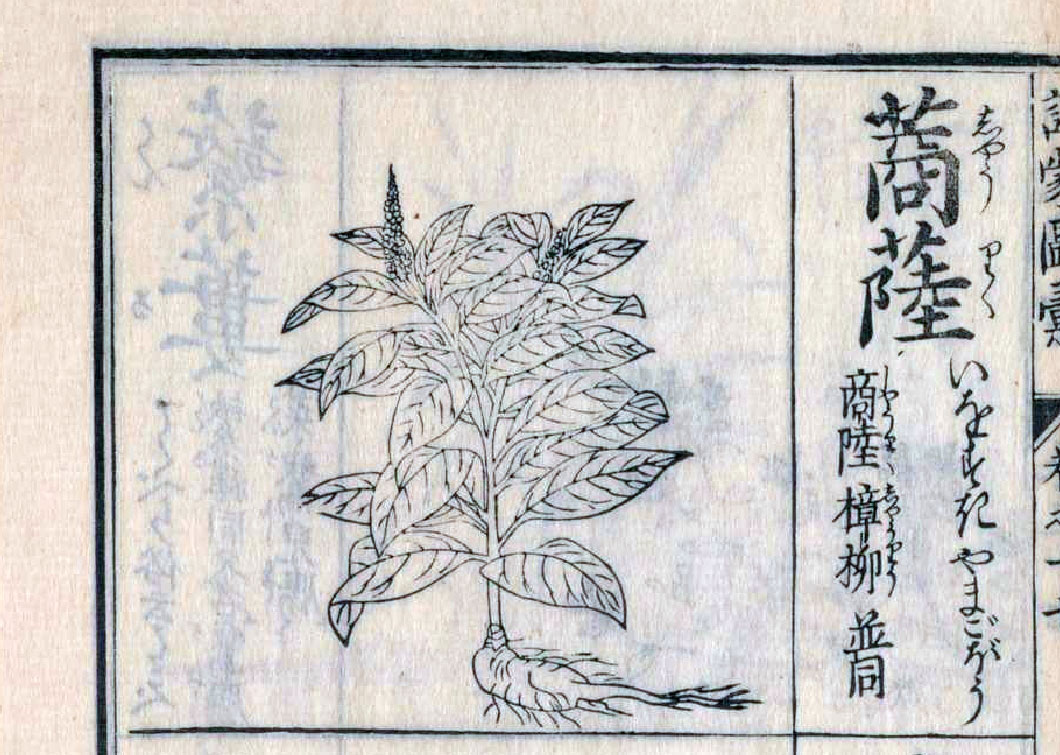 訓蒙圖彙
蔏陸
志やうりく
いをすき やまごばう
商陸 樟柳 並同
しやうりく 志やうりう